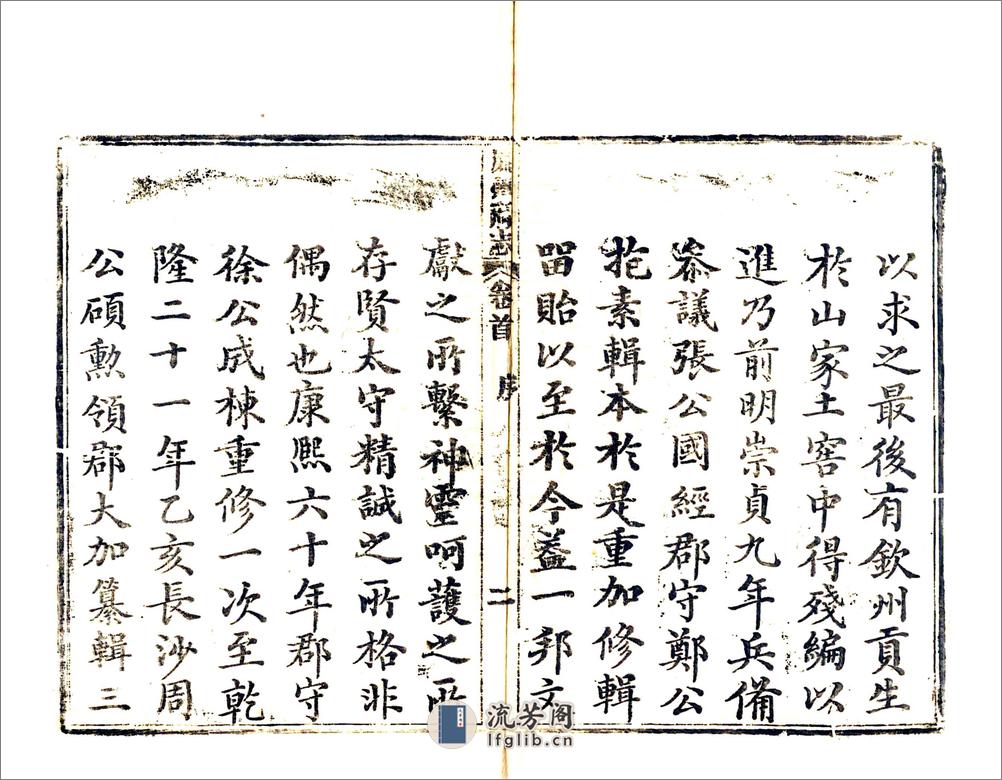 以求之最後有欽州貢生
於山家土窖中得殘編以
進乃前明崇貞九年兵備
叅議張公國經郡守鄭公
抱素輯本於是重加修輯
畱貽以至於今葢一邦文
州府志 卷首 序 二
獻之所繫神靈呵護之所
存賢太守精誠之所格非
偶然也康熙六十年郡守
徐公成棟重修一次至乾
隆二十一年乙亥長沙周
公碩勲領郡大加纂輯三
流芳阁
lfglib.cn